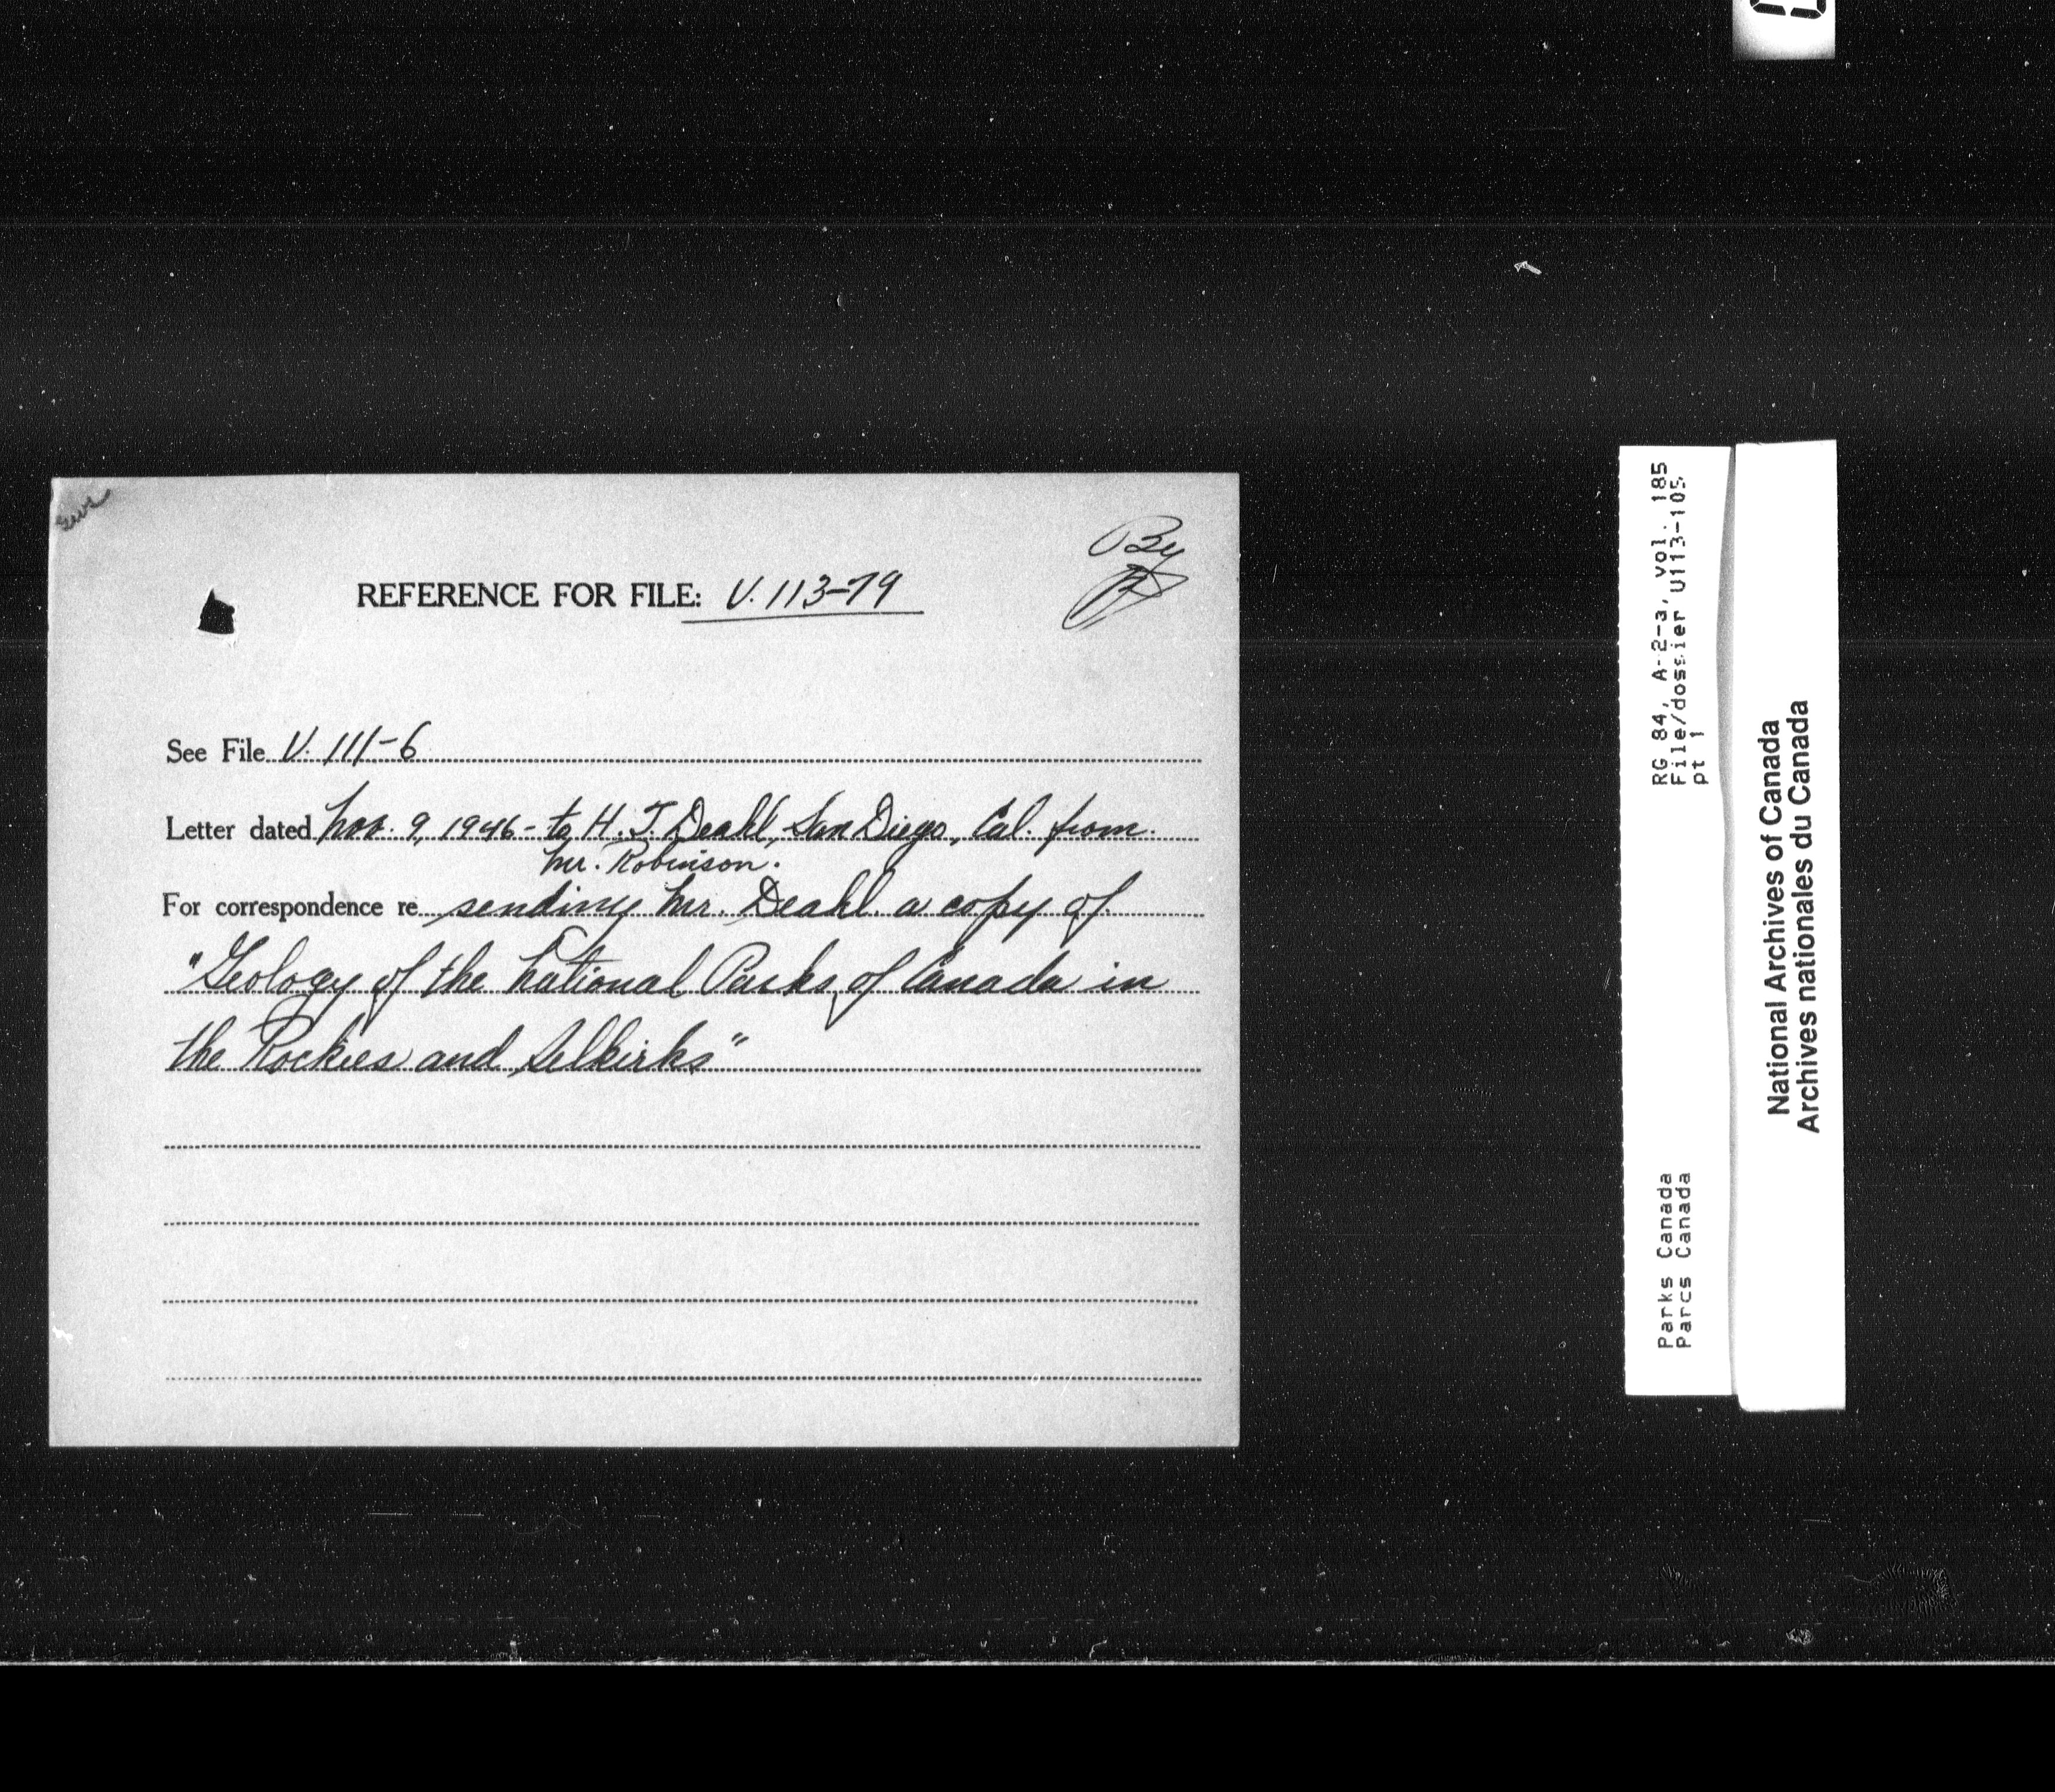 By
REFERENCE FOR FILE: V. 113-79
See File V. 111-6
Letter dated Nov. 9, 1946 - to H. J. Deahl, San Diego, Cal. from
Mr. Robinson.
For correspondence re sending Mr. Deahl a copy of
"Geology of the National Parks of Canada in
the Rockies and Selkirks"
RG 84, A-2-a, vol. 185
File/dossier U113-105
pt 1
Parks Canada
Parcs Canada
National Archives of Canada
Archives nationales du Canada